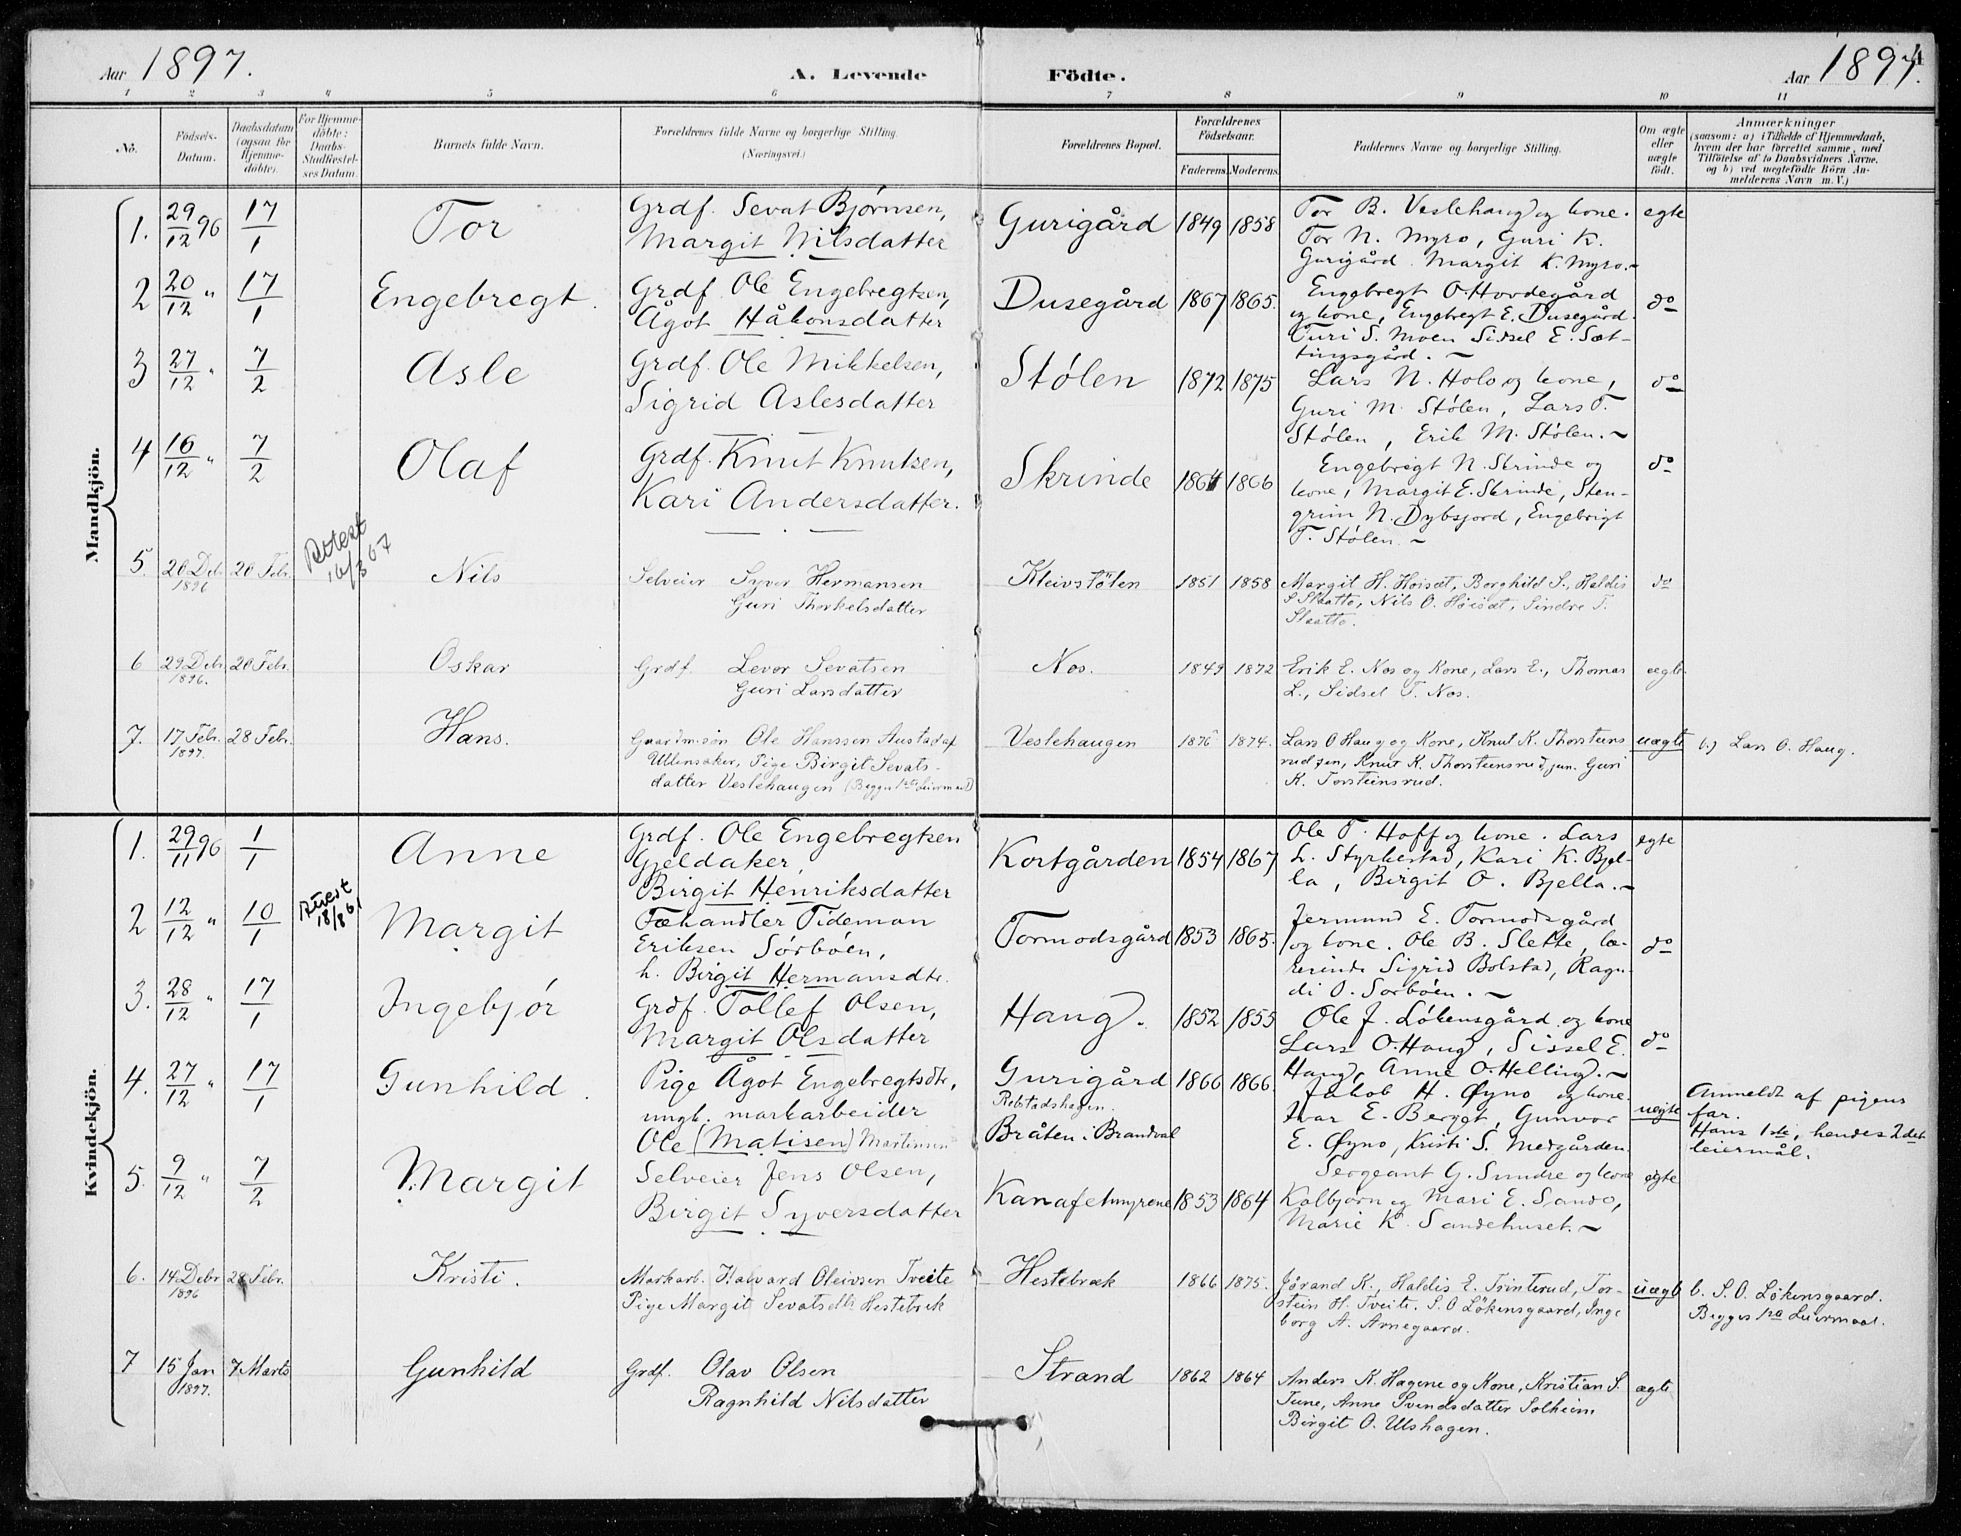 Aar 1897.
A. Levende Födte.
Aar 1897.
4
1 2 3 4 5 6 7 8 9 10 11
No.
Födsels-Datum.
Daabsdatum (ogsaa for Hjemme-döbte).
For Hjemme-döbte: Daabs-Stadfæstel-ses Datum.
Barnets fulde Navn.
Forældrenes fulde Navne og borgerlige Stilling.
(Næringsvei.)
Forældrenes Bopæl.
Forældrenes Födselsaar.
Faderens. Moderens.
Faddernes Navne og borgerlige Stilling.
Om ægte eller uægte födt.
Anmærkninger
(saasom: a) i Tilfælde af Hjemmedaab,
hvem der har forrettet samme, med
Tilföielse af to Daabsvidners Navne,
og b) ved uegtefödte Börn An-
melderens Navn m. V.)
Mandkjön.
1. 29/12 96 17/1 Tor Grdf. Sevat Bjørnsen, Gurigård 1849 1858 Tor B. Veslehaug og kone. egte
Margit Nilsdatter Tor N. Myro, Guri K.
Gurigård. Margit K. Myro.~
2 20/12 " 17/1 Engebregt. Grdf. Ole Engebregtsen, Dusegård 1867 1865. Engebregt O. Hovdegård do
Ågot Håkonsdatter og kone, Engebregt E. Dusegård.
Turi S. Moen Sidsel E. Sæt-
tingsgård. ~
3 27/12 " 7/2 Asle Grdf. Ole Mikkelsen, Stølen 1872 1875 Lars N. Holo og kone, do
Sigrid Aslesdatter Guri M. Stølen, Lars T.
Stølen, Erik M. Stølen.~
4 16/12 " 7/2 Olaf Grdf. Knut Knutsen, Skrinde 1864 1866 Engebrigt N. Skrinde og do
Kari Andersdatter. kone, Margit E. Skrinde, Sten-
grim N. Dybsjord, Engebrigt
T. Stølen. ~
5. 20 Deb. 1896 20 Febr. Attest 16/3 67 Nils Selveier Syver Hermansen Kleivstölen 1851 1858 Margit H. Hoisæt, Borghild S., Haldis do
Guri Thorkelsdatter S Slaatto, Nils O. Höisæt, Sindre T.
Slaatto.
6 29 Debr 1896. 20 Febr. Oskar Grdf. Levor Sevatsen Nos. 1849 1872 Erik E. Nos og Kone, Lars E., Thomas ægte
Guri Larsdatter L., Sidsel T. Nos.
7. 17 Febr. 1897. 28 Febr. Hans. Gaardm.søn Ole Hanssen Austad af Veslehaugen 1876 1874. Lars O Haug og Kone, Knut K. Thorsteins uægte b.) Lars O. Haug.
Ullensaker, Pige Birgit Sevats- rud sen, Knut K. Thorsteinsrud jun. Guri
datter Veslehaugen (Begges 1ste Leiermaal) K. Torsteinsrud.
Kvindekjön.
1. 29/11 96 1/1 Anne Grdf. Ole Engebregtsen Kortgården 1854 1867 Ole T. Hoff og kone. Lars egte
Gjeldaker, L. Styrkestad, Kari K. Bjel-
Birgit Henriksdatter la, Birgit O. Bjella.~
2 12/12 " 10/1 Attest 18/8 61 Margit Fæhandler Tideman Tormodsgård 1853 1865. Jermund E. Tormodsgård do
Eriksen Sörböen, og kone. Ole B. Slette, læ-
h. Birgit Hermansdtr. rerinde Sigrid Bolstad, Ragn-
di O. Sorböen. ~
3. 28/12 " 17/1 Ingebjór Grdf. Tollef Olsen, Haug. 1852 1855 Ole J. Lökensgård og kone do
Margit Olsdatter Lars O. Haug, Sissel E.
Haug, Anne O. Helling.~
4. 27/12 " 17/1 Gunhild. Pige Ågot Engebregtsdtr., Gurigård 1866 1866. Jakob H. Øyno og kone. uegte Anmeldt af pigens
ungk. markarbeider Rolstadshagen. Ivar E. Berget, Gunvor far.
Ole (Matisen) Martinsen Bråten i Brandval E. Øyno, Kristi S. Medgården. Hans 1ste, hendes 2det
leiermål.
5. 9/12 " 7/2 Margit Selveier Jens Olsen, Kanafetmyrene 1853 1864 Sergeant G. Sundre og kone egte
Birgit Syversdatter Kolbjørn og Mari E. Sando,
Marie K. Sandehuset.~
6. 14 Debr 1896 28 Febr. Kristi. Markarb. Halvard Oleivsen Tveite Hestebræk 1866 1875. Jörand K., Haldis E. Trinterud, Tor- uægte b. S. O. Lökensgaard.
Pige Margit Sevatsdtr Hestebræk stein H. Tveite. S. O Lökensgaard, Inge Begges 1ste Leiermaal.
borg A. Arnegaard.
7 15 Jan 1897. 7 Marts Gunhild Grdf. Olav Olsen Strand 1862 1864 Anders K. Hagene og Kone, Kristian S. ægte
Ragnhild Nilsdatter Tune, Anne Svendsdatter Solheim
Birgit O. Ulshagen.